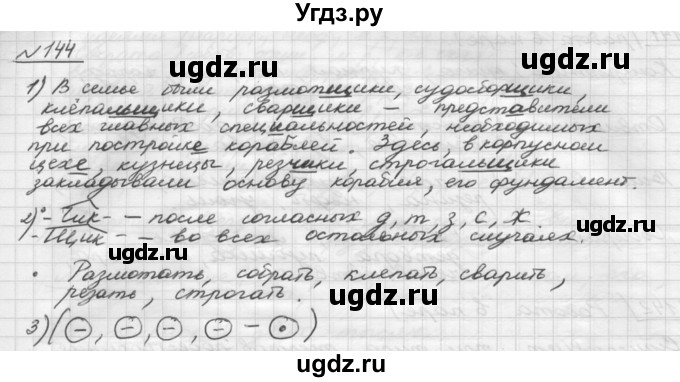 Угдз.ру
№144
1) В семье были размотчики, судосборщики,
клепальщики, сварщики – представители
всех главных специальностей, необходимых
при постройке кораблей. Здесь, в корпусном
цехе, кузнецы, резчики, строгальщики
закладывали основу корабля, его фундамент.
2)° -Чик- – после согласных д, т, з, с, ж.
-Щик- – во всех остальных случаях.
• Размотать, собрать, клепать, сварить,
резать, строгать.
3) (⊖, ⊖, ⊖, ⊖ – ⊙)
ugdz.ru ugdz.ru
ugdz.ru ugdz.ru
ugdz.ru ugdz.ru
ugdz.ru ugdz.ru
ugdz.ru
Угдз.ру